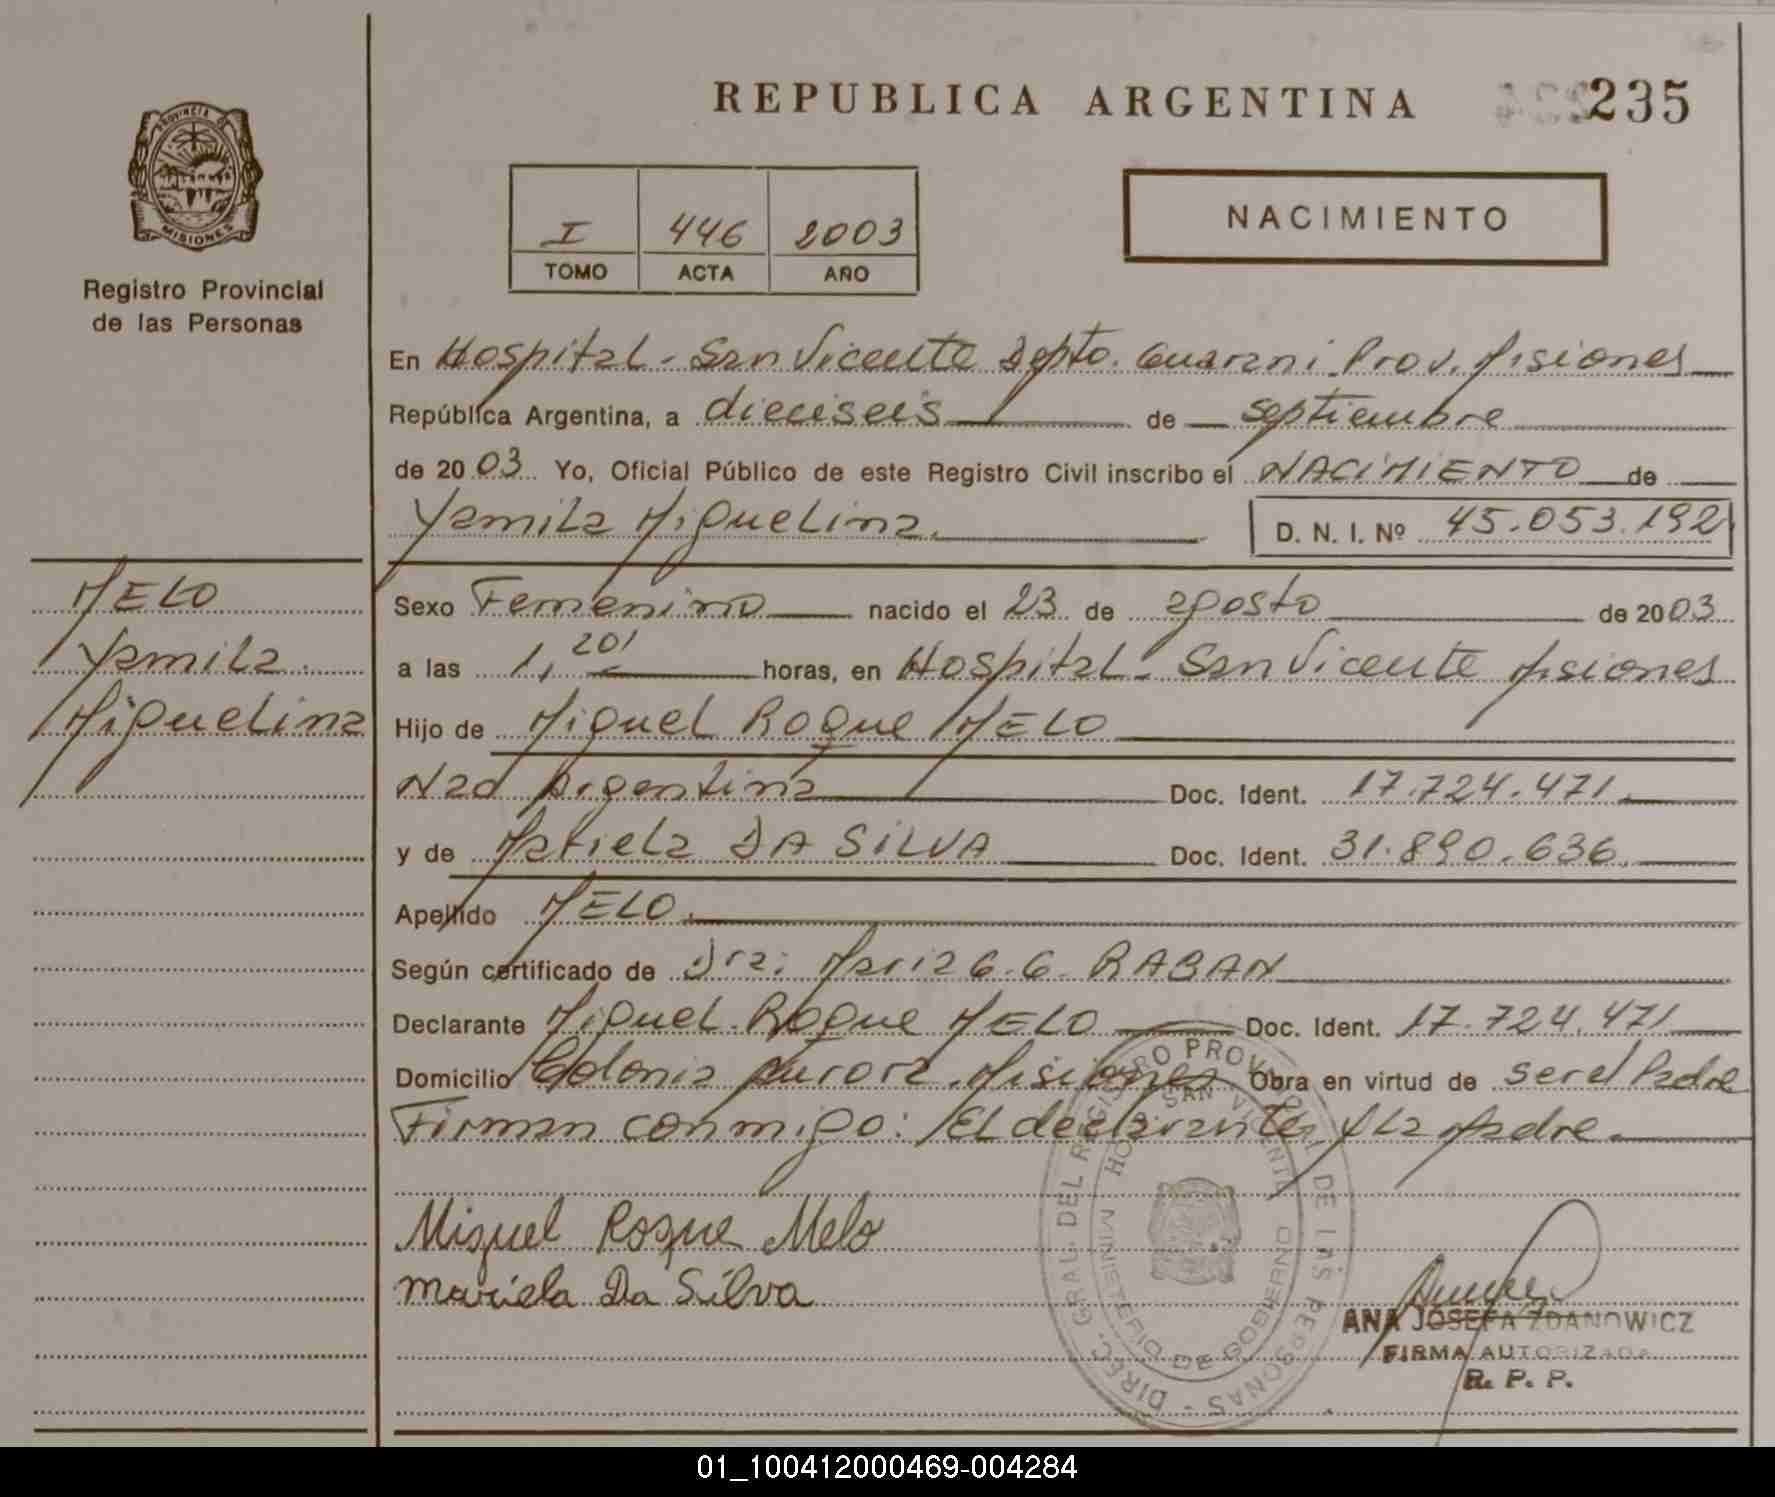 REPUBLICA ARGENTINA
235
PROVINCIA DE
MISIONES
Registro Provincial
de las Personas
I 446 2003
TOMO ACTA AÑO
NACIMIENTO
En Hospital - San Vicente Dpto. Guarani Prov. Misiones
República Argentina, a dieciseis de septiembre
de 2003 Yo, Oficial Público de este Registro Civil inscribo el NACIMIENTO de
Yamila Miguelina. D. N. I. Nº 45.053.192
MELO
Yamila
Miguelina
Sexo Femenino nacido el 23 de agosto de 2003
a las 1,20' horas, en Hospital - San Vicente Misiones
Hijo de Miguel Roque MELO
Nad Argentina Doc. Ident. 17.724.471
y de Mariela DA SILVA Doc. Ident. 31.890.636
Apellido MELO.
Según certificado de Dra: Maria G. G. RABAN
Declarante Miguel Roque MELO Doc. Ident. 17.724.471
Domicilio Colonia Aurora. Misiones Obra en virtud de ser el Padre
Firman conmigo: El declarante y la Madre.
Miguel Roque Melo
Mariela Da Silva
DIREC. GRAL. DEL REGISTRO PROVINCIAL DE LAS PERSONAS
MINISTERIO DE GOBIERNO
ANA JOSEFA ZDANOWICZ
FIRMA AUTORIZADA
R. P. P.
01_100412000469-004284